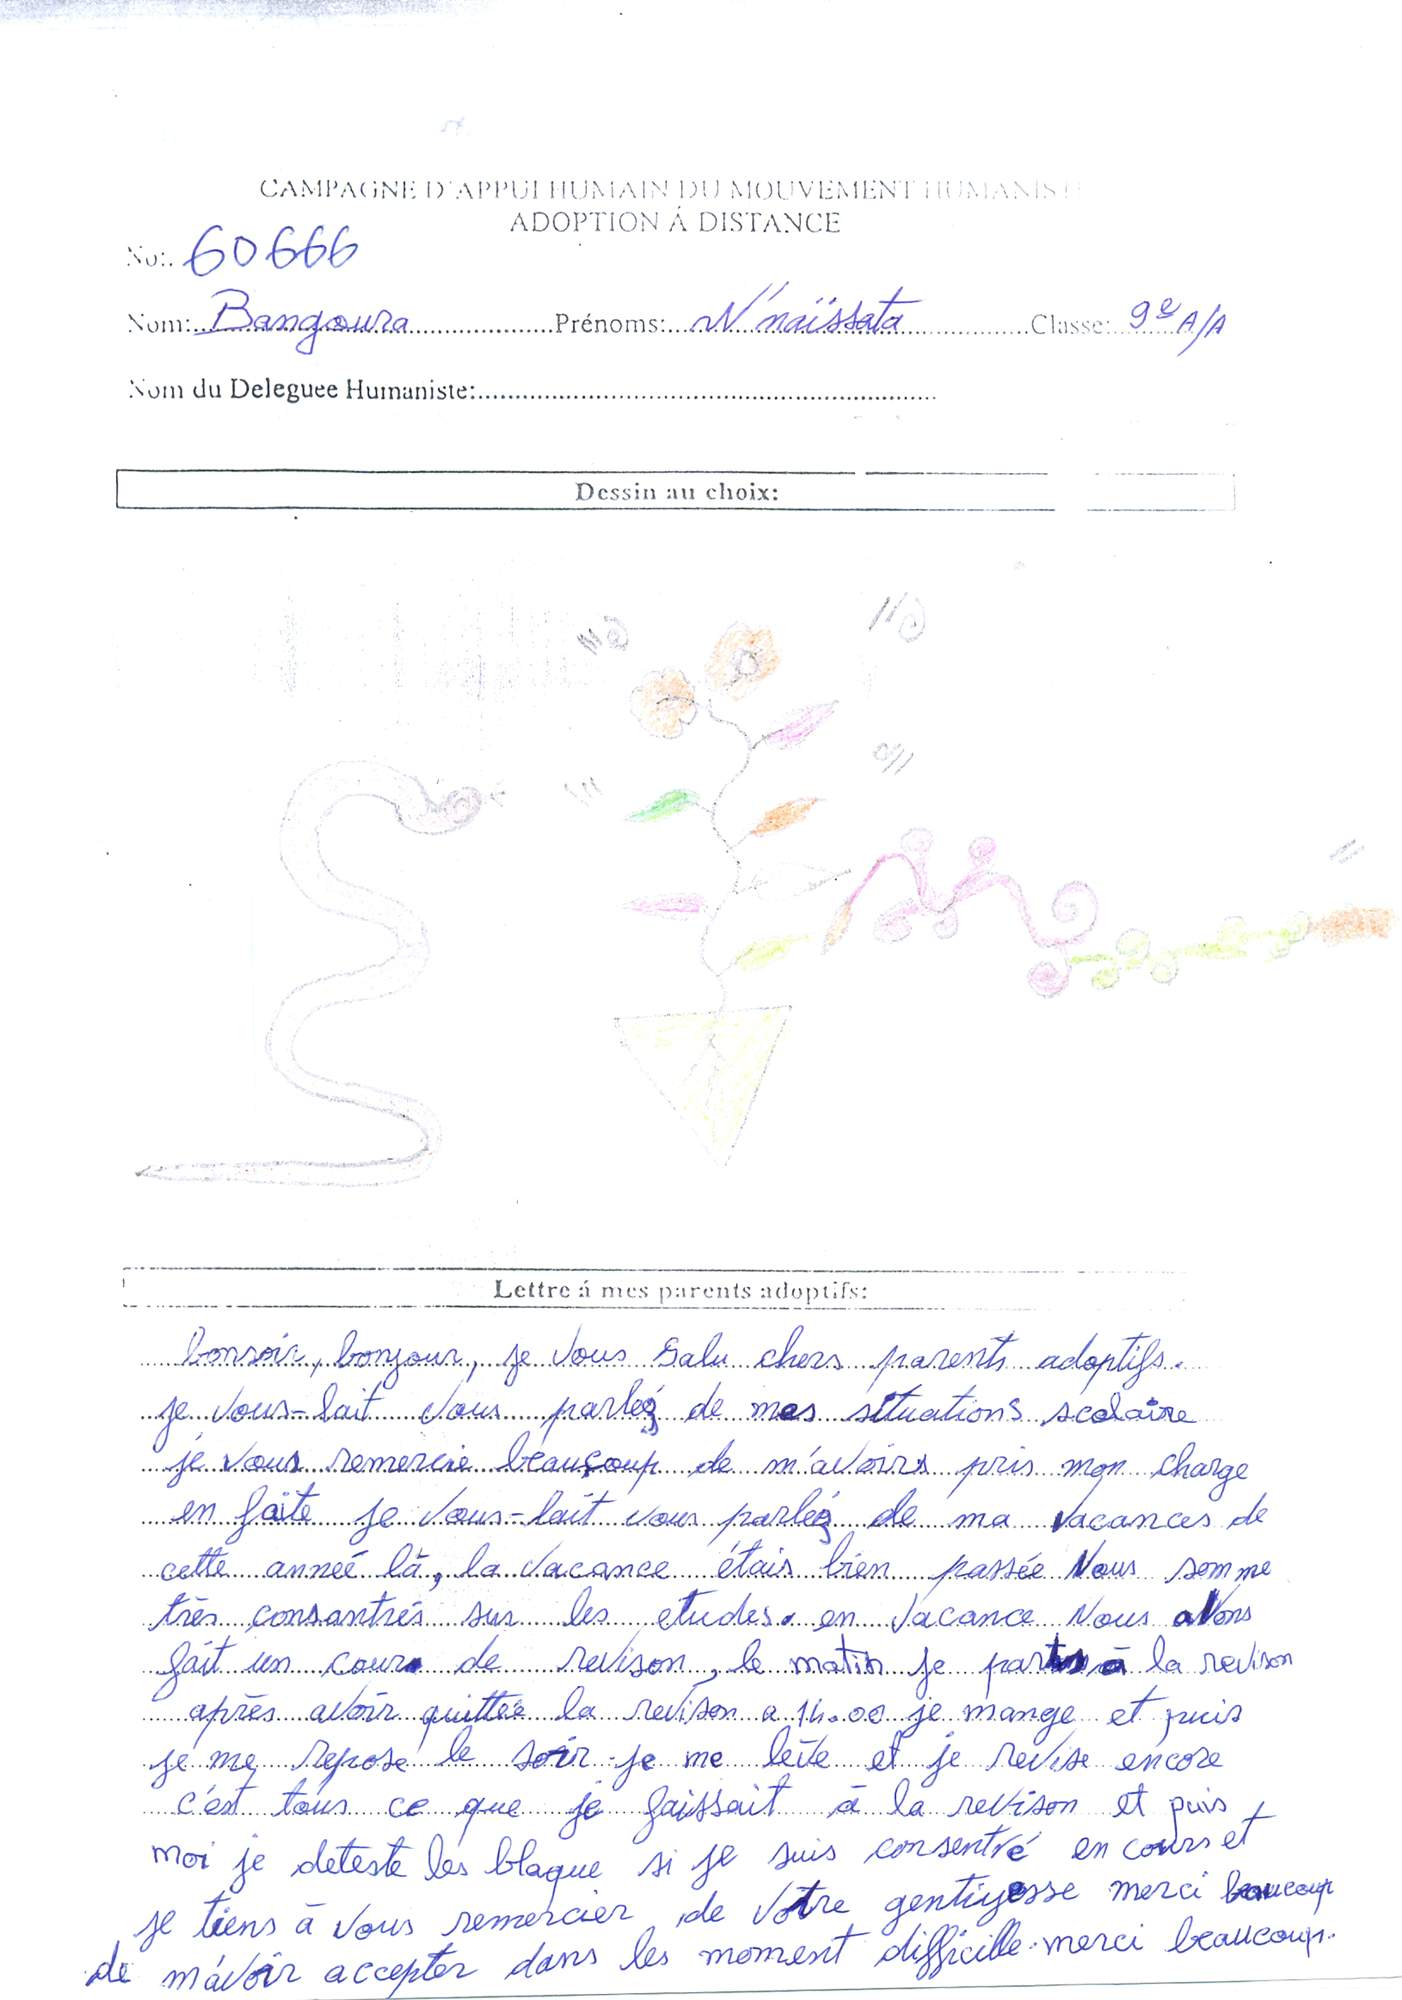 CAMPAGNE D'APPUI HUMAIN DU MOUVEMENT HUMANISTE
ADOPTION Á DISTANCE
No: 60666
Nom: Bangoura Prénoms: N'naïssata Classe: 9e A/A
Nom du Deleguee Humaniste:
Dessin au choix:
Lettre á mes parents adoptifs:
bonsoir, bonjour, je vous Salu chers parents adoptifs.
je vous-lait vous parléz de mes situations scolaire
je vous remercie beauçoup de m'avoirs pris mon charge
en faite je vous-lait vous parléz de ma vacances de
cette anneé là, la vacance étais bien passée Nous somme
très consantrés sur les etudes. en vacance Nous avons
fait un cours de revison, le matin je parts à la revison
après avoir quittée la revison a 14.00 je mange et puis
je me repose le soir je me lève et je revise encore
c'est tous ce que je faissait à la revison et puis
moi je deteste les blaque si je suis consentré en cours et
je tiens à vous remercier de votre gentiyesse merci beaucoup
de m'avoir accepter dans les moment difficille. merci beaucoup.